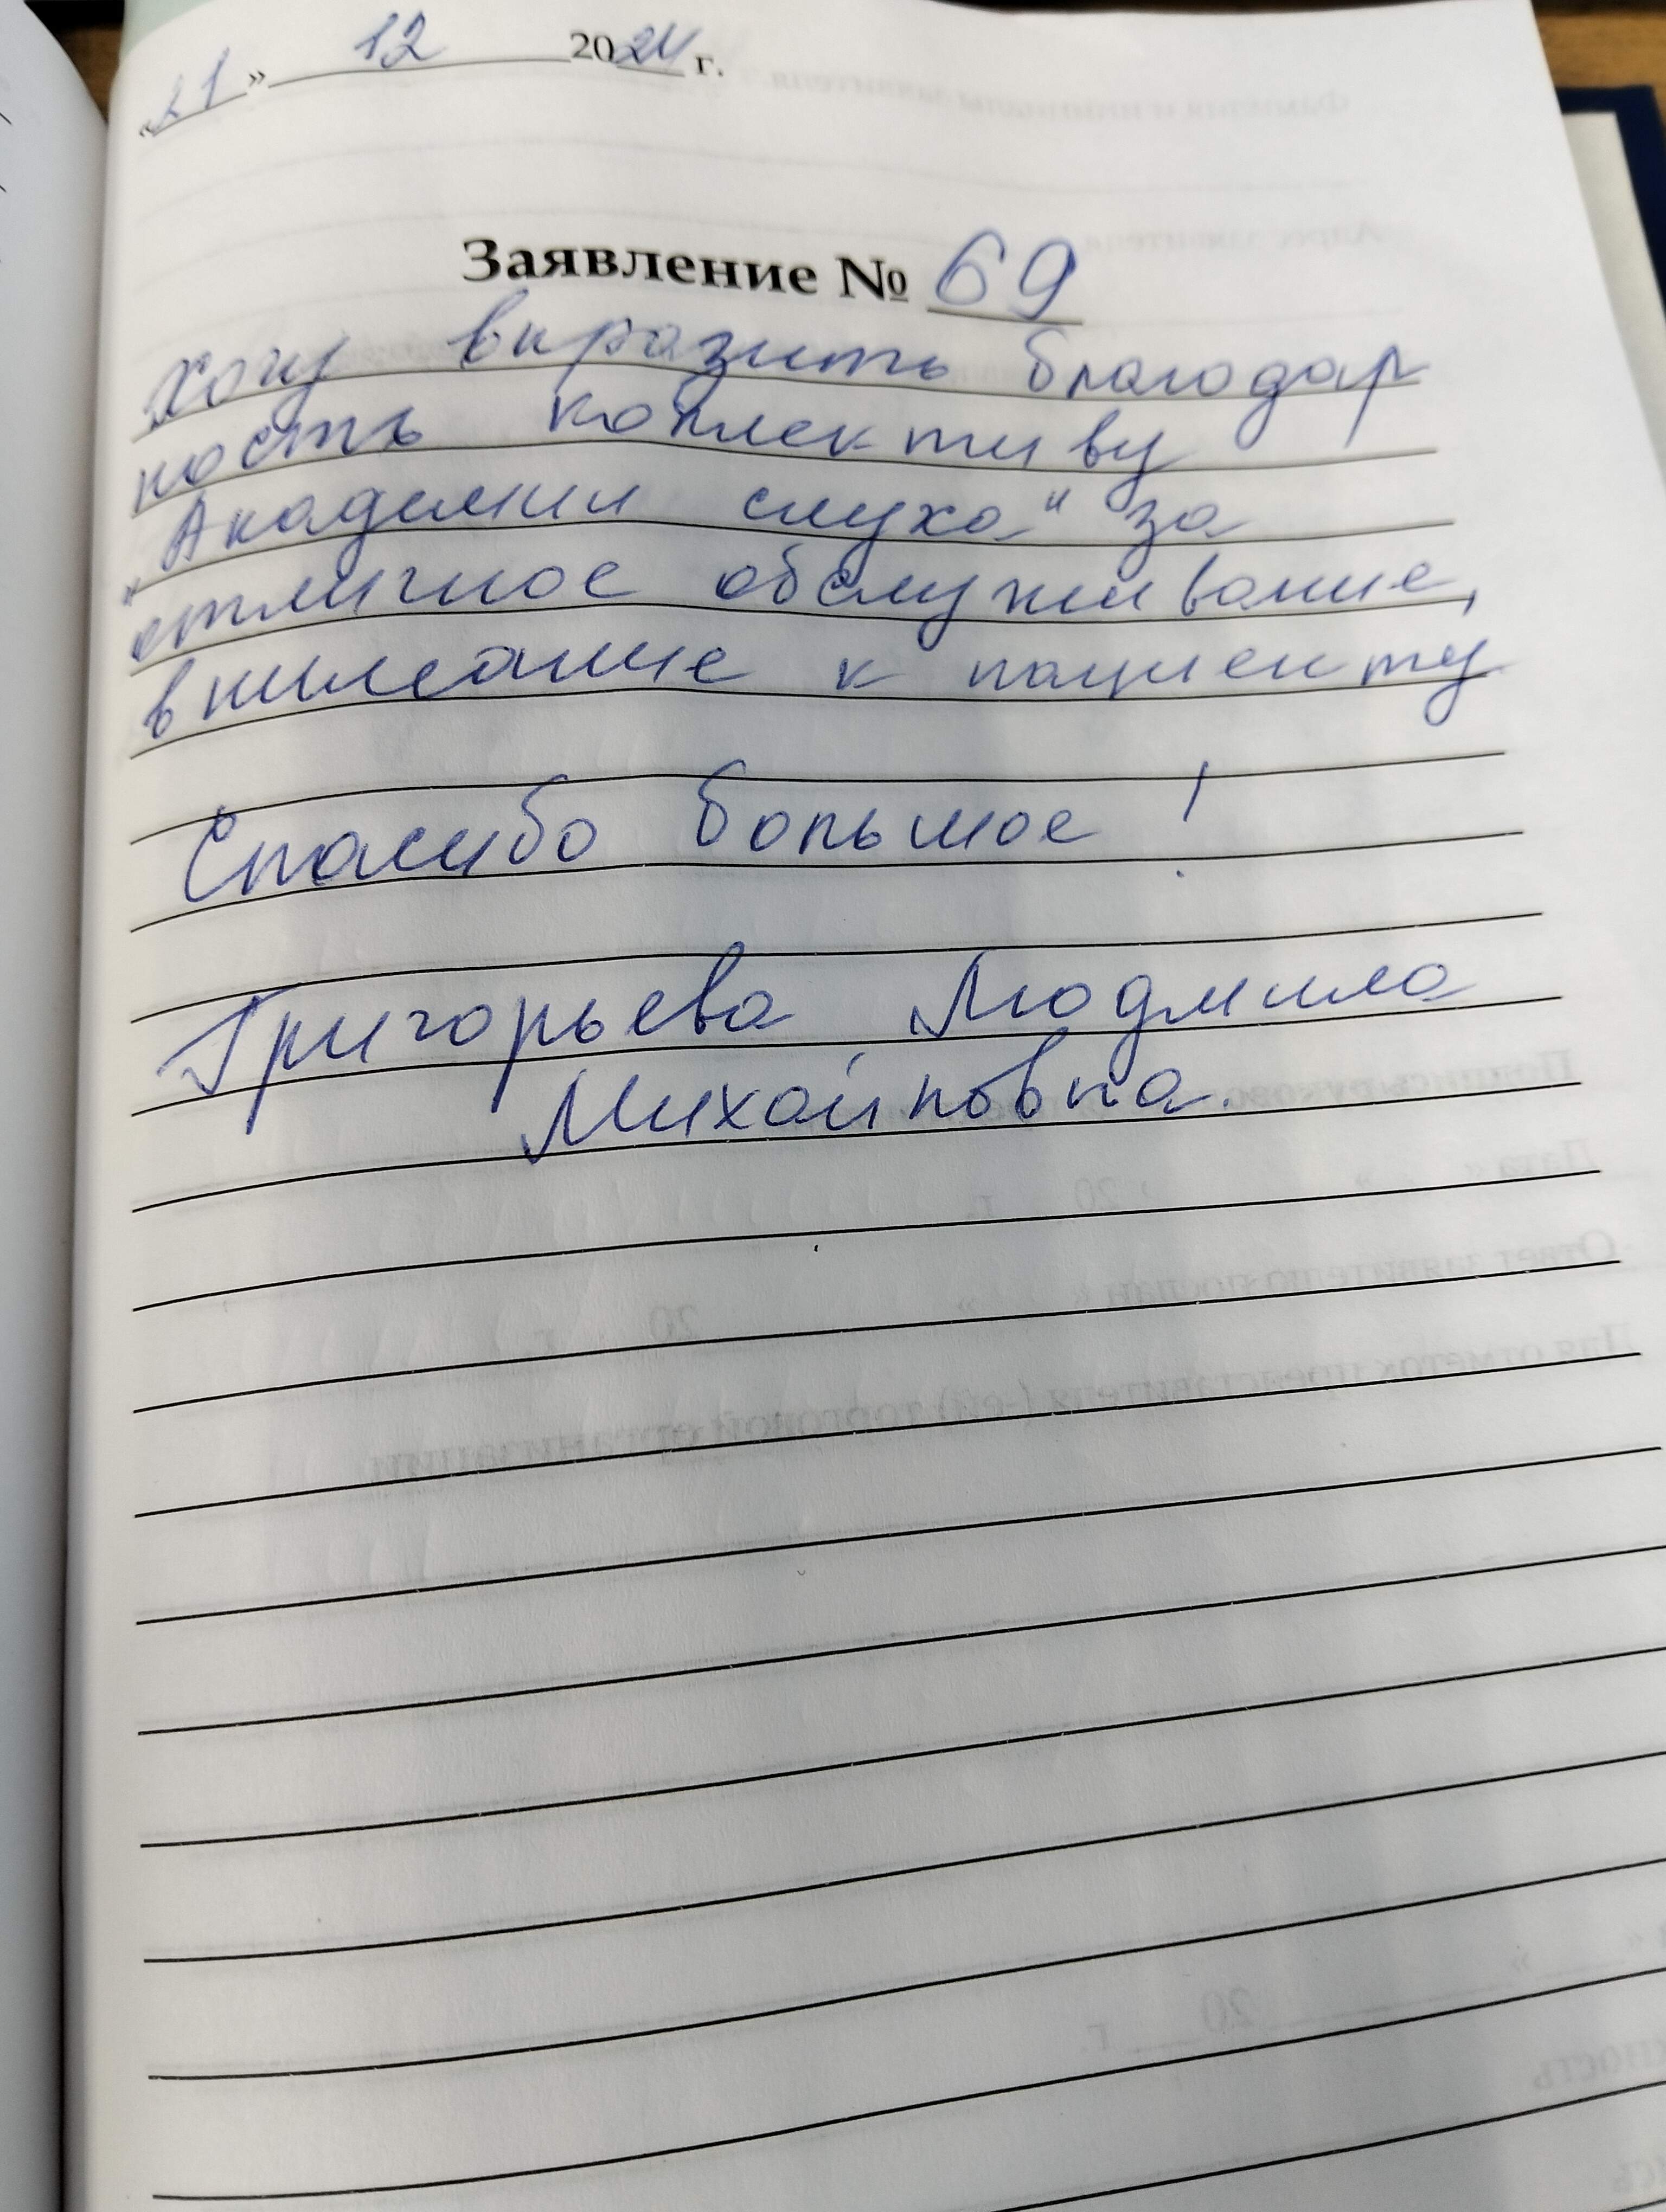 «21» 12 2024 г.
Заявление № 69
Хочу выразить благодар
ность коллективу
"Академии слуха" за
отличное обслуживание,
внимание к пациенту
Спасибо большое!
Григорьева Людмила
Михайловна.